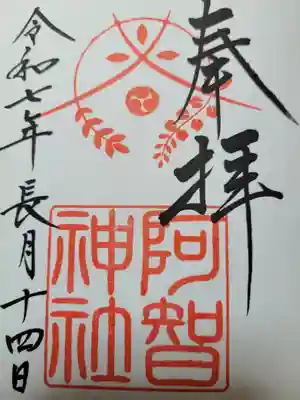 奉拝
阿智
神社
令和七年 長月十四日